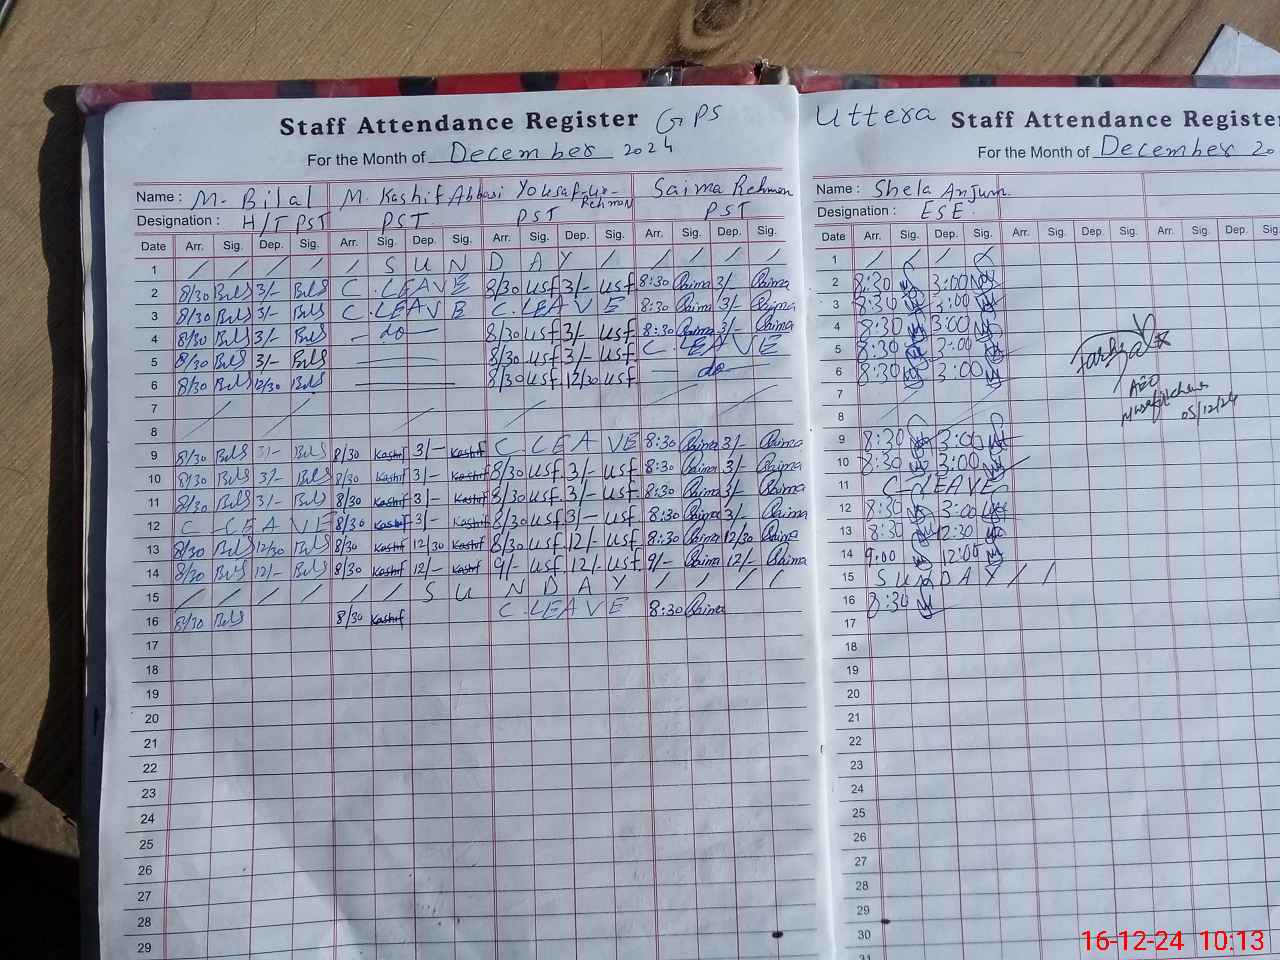 Staff Attendance Register GPS
For the Month of December 2024
Name : M. Bilal M. Kashif Abbasi Yousaf-ur-Rehman Saima Rehman
Designation : H/T PST PST PST PST
Date Arr. Sig. Dep. Sig. Arr. Sig. Dep. Sig. Arr. Sig. Dep. Sig. Arr. Sig. Dep. Sig.
1 / / / / / S U N D A Y / / / / /
2 8/30 3/- C.LEAVE 8/30 usf 3/- usf 8:30 Saima 3/- Saima
3 8/30 3/- C.LEAVE C.LEAVE 8:30 Saima 3/- Saima
4 8/30 3/- — do — 8/30 usf 3/- usf 8:30 Saima 3/- Saima
5 8/30 3/- 8/30 usf 3/- usf C.LEAVE
6 8/30 12/30 8/30 usf 12/30 usf — do —
7
8
9 8/30 3/- 8/30 Kashif 3/- Kashif C.LEAVE 8:30 Saima 3/- Saima
10 8/30 3/- 8/30 Kashif 3/- Kashif 8/30 usf 3/- usf 8:30 Saima 3/- Saima
11 8/30 3/- 8/30 Kashif 3/- Kashif 8/30 usf 3/- usf 8:30 Saima 3/- Saima
12 C-LEAVE 8/30 Kashif 3/- Kashif 8/30 usf 3/- usf 8:30 Saima 3/- Saima
13 8/30 12/30 8/30 Kashif 12/30 Kashif 8/30 usf 12/- usf 8:30 Saima 12/30 Saima
14 8/30 12/- 8/30 Kashif 12/- Kashif 9/- usf 12/- usf 9/- Saima 12/- Saima
15 / / / / / / S U N D A Y / / / /
16 8/30 8/30 Kashif C.LEAVE 8:30 Saima
17
18
19
20
21
22
23
24
25
26
27
28
29
Uttera Staff Attendance Register
For the Month of December 20
Name : Shela Anjum
Designation : ESE
Date Arr. Sig. Dep. Sig. Arr. Sig. Dep. Sig. Arr. Sig. Dep. Sig.
1 / / / /
2 8:30 3:00
3 8:30 3:00
4 8:30 3:00
5 8:30 3:00
6 8:30 3:00
AEO
05/12/24
7
8
9 8:30 3:00
10 8:30 3:00
11 C-LEAVE
12 8:30 3:00
13 8:30 12:30
14 9:00 12:00
15 SUNDAY / /
16 8:30
17
18
19
20
21
22
23
24
25
26
27
28
29
30
31
16-12-24 10:13